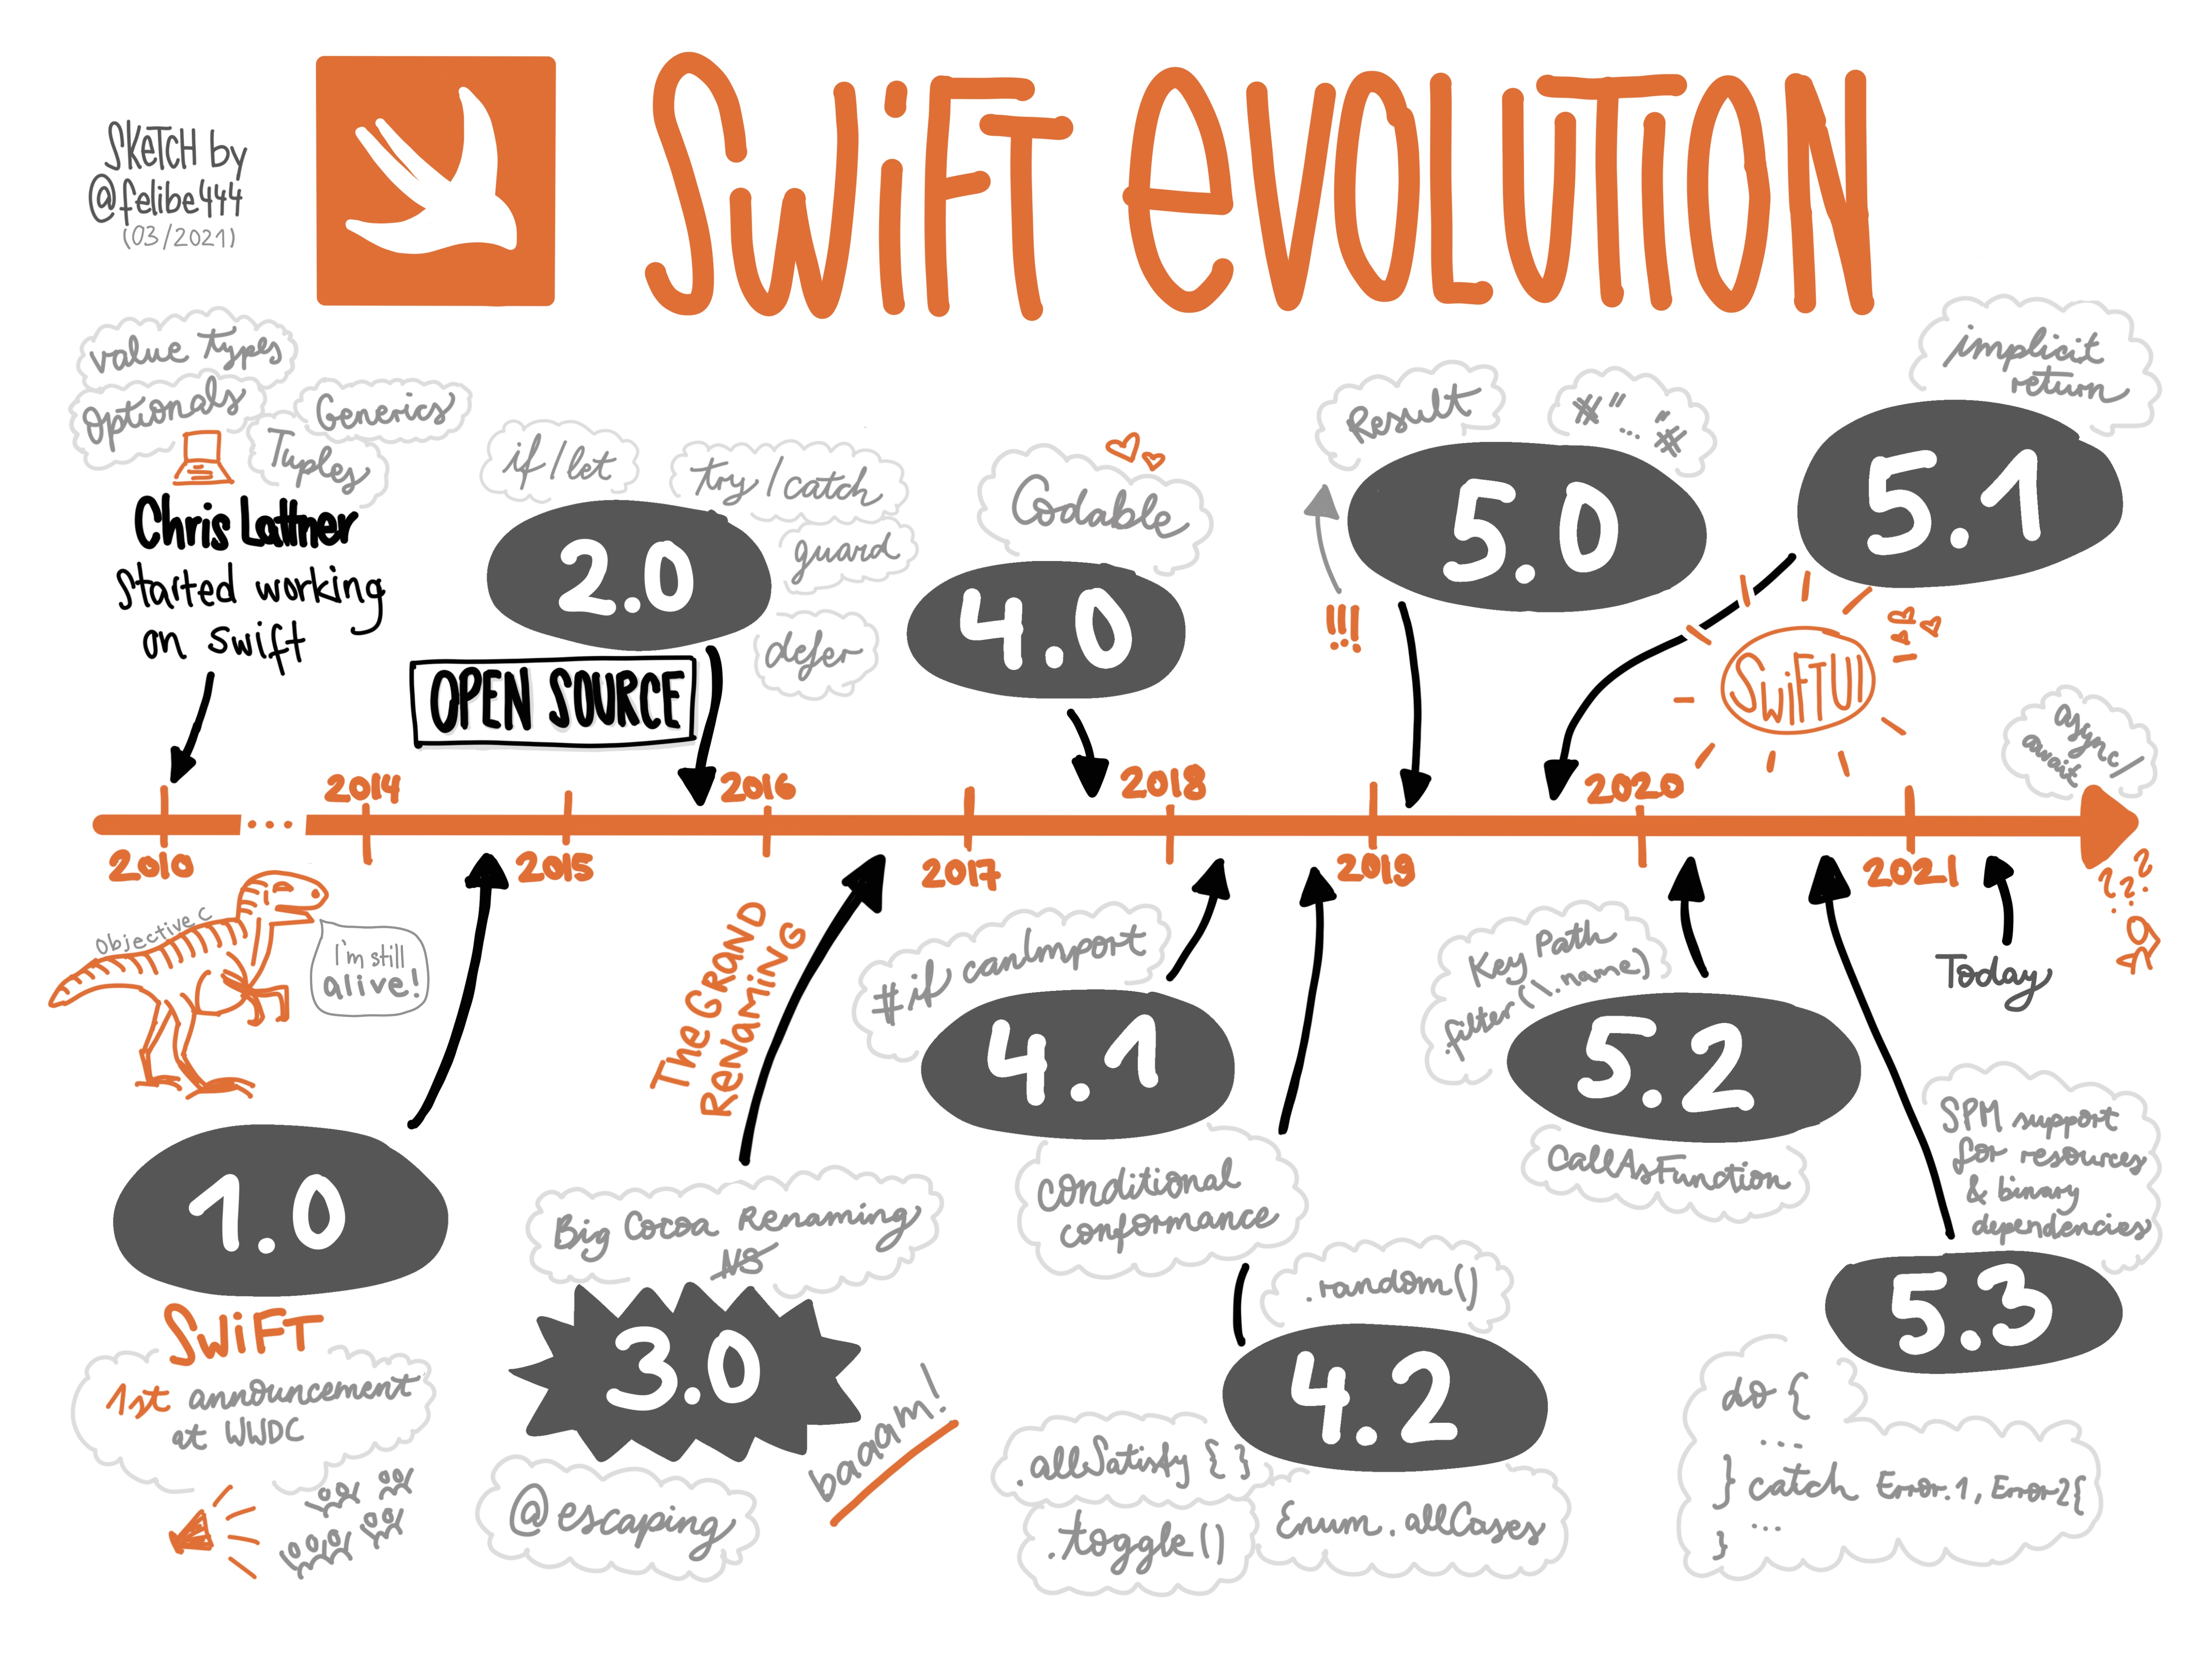 SKETCH by
@felibe444
(03/2021)
SWiFT eVOLUTION
value types
Optionals
Generics
Tuples
Chris Lattner
started working
on swift
if/let
try/catch
guard
defer
2.0
OPEN SOURCE
Codable
4.0
Result
#"..."#
5.0
!!!
implicit
return
5.1
SWiFTUI
async/
await
2010
...
2014
2015
2016
2017
2018
2019
2020
2021
???
Objective C
I'm still
alive!
1.0
SWiFT
1st announcement
at WWDC
The GRAND
RenamiNG
Big Cocoa Renaming
NS
3.0
baaam!
@escaping
#if canImport
4.1
conditional
conformance
.random()
4.2
.allSatisfy { }
.toggle()
Enum.allCases
Key Path
filter(\.name)
5.2
CallAsFunction
Today
SPM support
for resources
& binary
dependencies
5.3
do {
...
} catch Error.1, Error2{
...
}